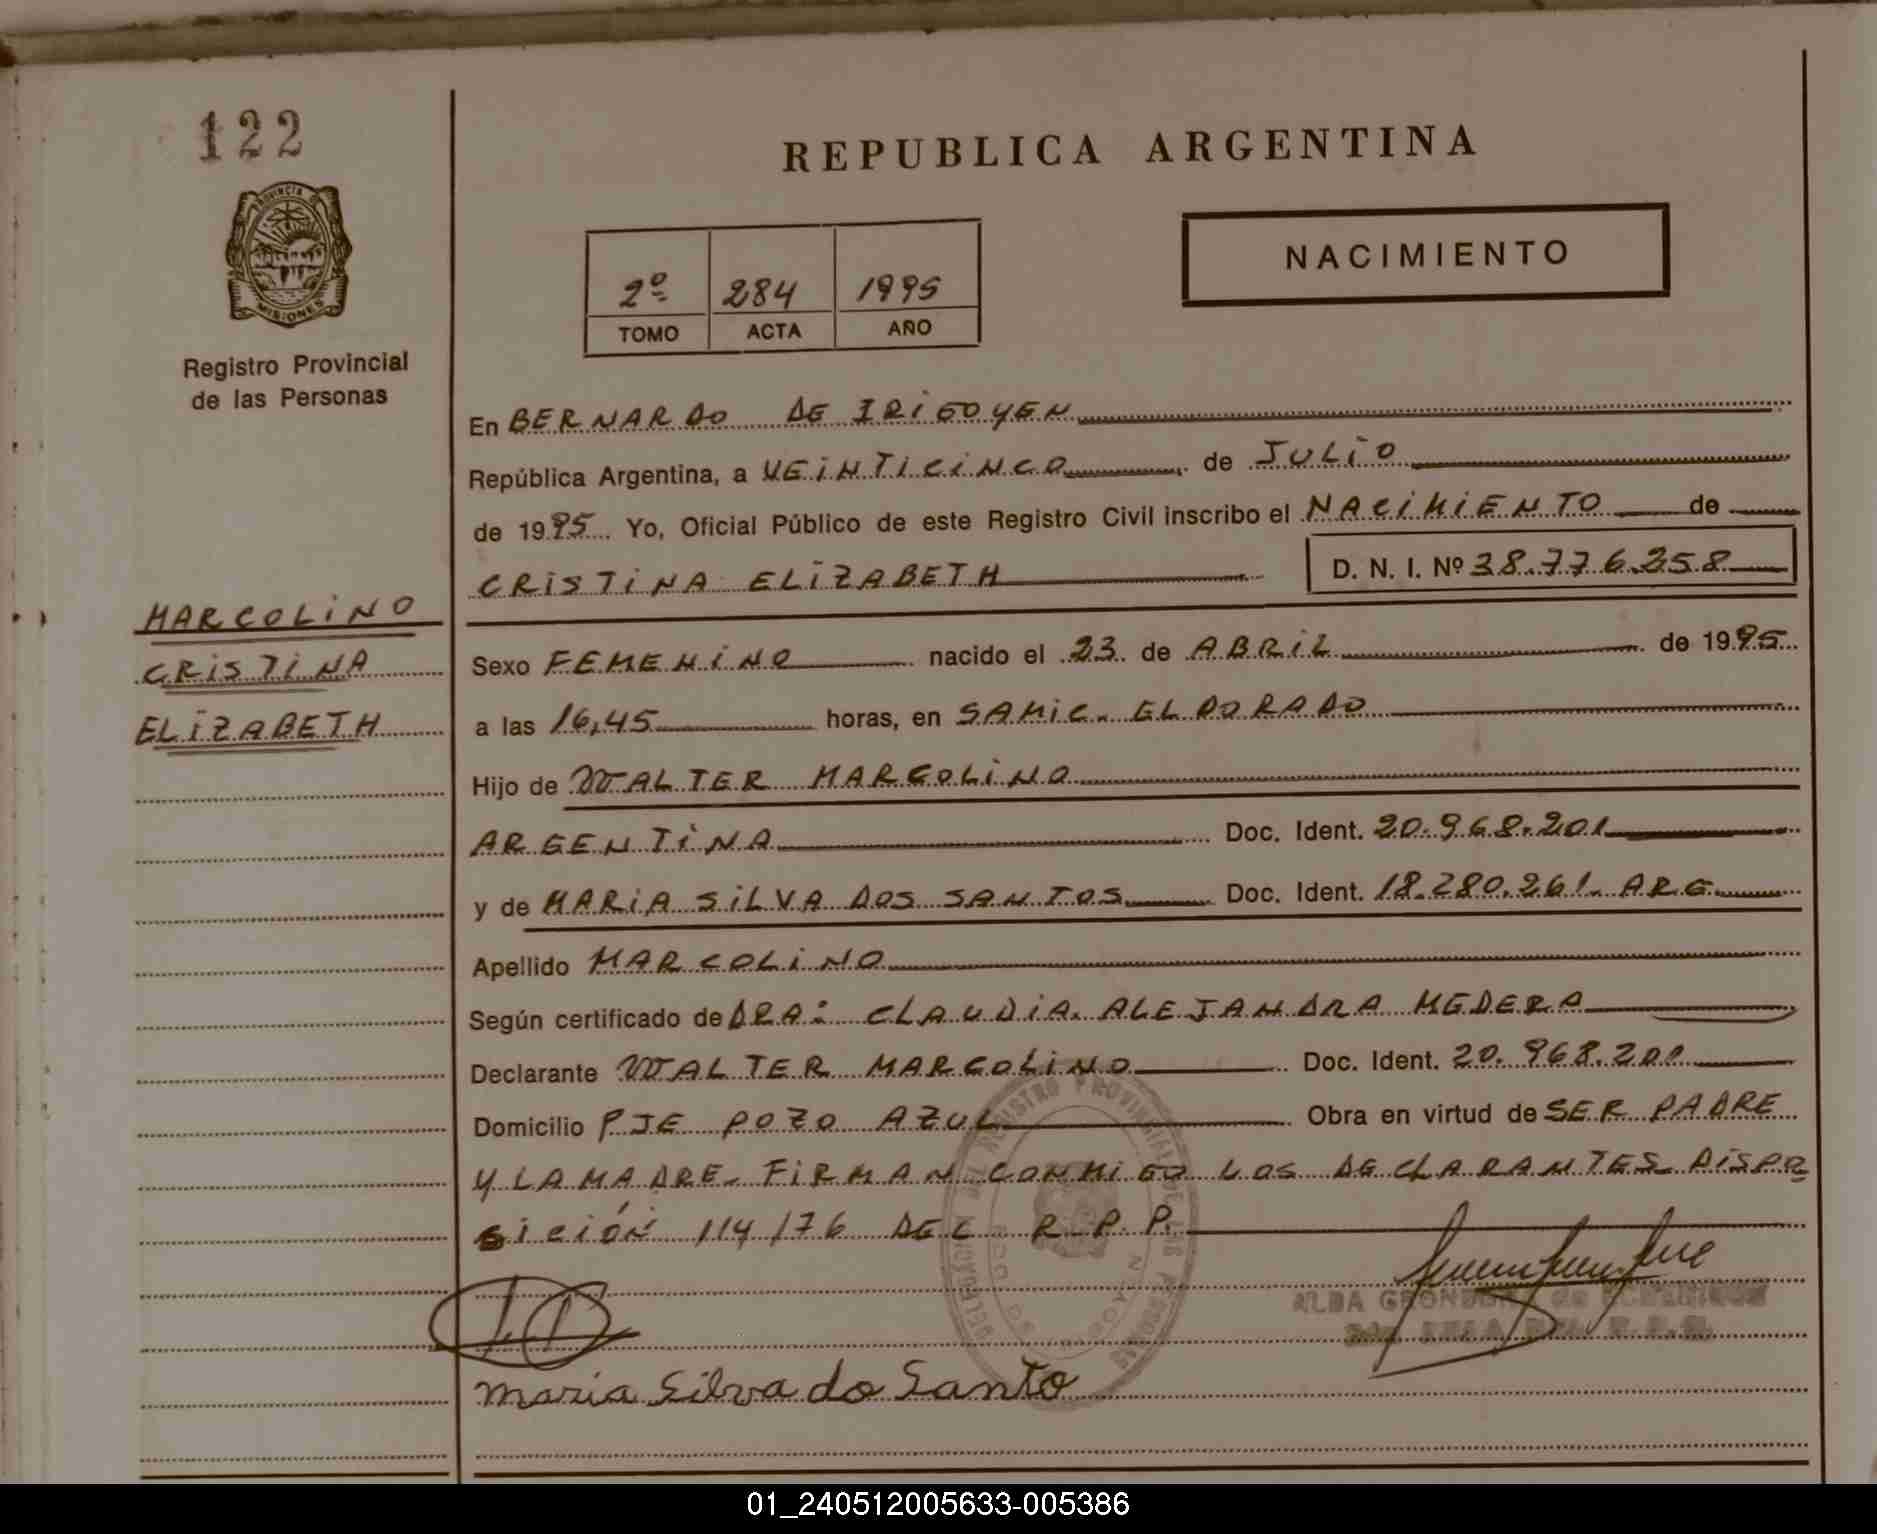 122
REPUBLICA ARGENTINA
PROVINCIA
MISIONES
NACIMIENTO
2º 284 1995
TOMO ACTA AÑO
Registro Provincial
de las Personas
En BERNARDO DE IRIGOYEN
República Argentina, a VEINTICINCO de JULIO
de 1995 Yo, Oficial Público de este Registro Civil inscribo el NACIMIENTO de
CRISTINA ELIZABETH D. N. I. Nº 38.776.258
MARCOLINO
CRISTINA
ELIZABETH
Sexo FEMENINO nacido el 23 de ABRIL de 1995
a las 16,45 horas, en SAMIC. ELDORADO
Hijo de WALTER MARCOLINO
ARGENTINA Doc. Ident. 20.968.201
y de MARIA SILVA DOS SANTOS Doc. Ident. 18.280.261. ARG
Apellido MARCOLINO
Según certificado de DRA: CLAUDIA. ALEJANDRA MEDERA
Declarante WALTER MARCOLINO Doc. Ident. 20.968.201
Domicilio PJE POZO AZUL Obra en virtud de SER PADRE
Y LA MADRE. FIRMAN CONMIGO LOS DECLARANTES. DISPO
SICIÓN 114/76 DEL R.P.P.
ALDA
maria Silva do Santo
01_240512005633-005386